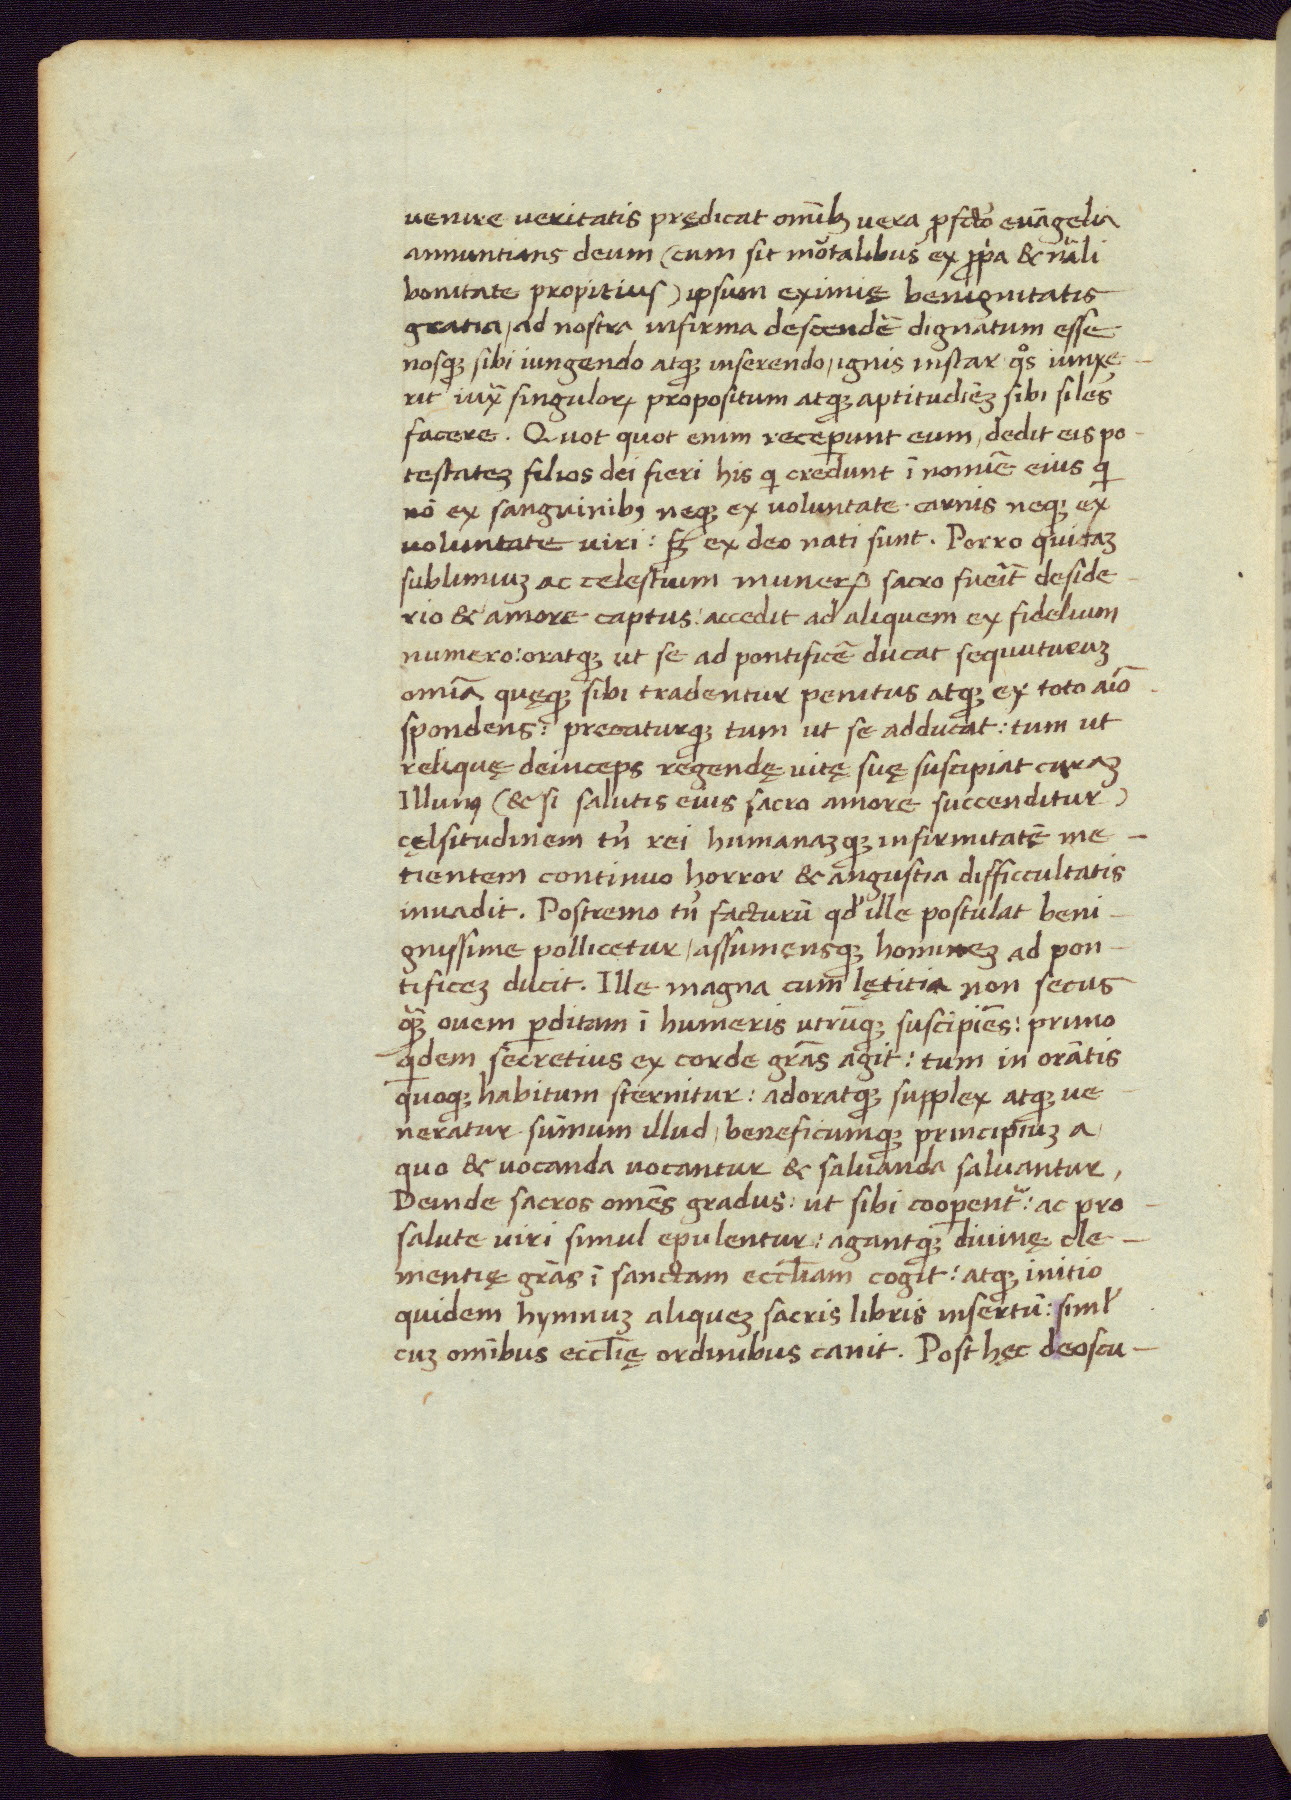 uenire ueritatis prędicat omīb; uera ꝓfcto euāgelia
annuntians deum (cum sit moͬtalibus ex ꝓp̍a & nāli
bonitate propitius) ipsum eximię benignitatis
gratia, ad nostra infirma descendē dignatum esse
nosq; sibi iungendo atq; inserendo, ignis instar qͦs iunxe-
rit iux̄ singuloꝝ propositum atq; aptitudiēꝫ sibi silēs
facere. Quot quot enim receꝑunt eum, dedit eis po-
testateꝫ filios dei fieri his qͥ credunt ī nomīe eius qͥ
nō ex sanguinibꝰ neq; ex uoluntate carnis neq; ex
uoluntate uiri: sꝫ ex deo nati sunt. Porro quisaꝫ
sublimiuꝫ ac celestium muneꝝ sacro fueīt deside-
rio & amore captus: accedit ad aliquem ex fidelium
numero: oratq; ut se ad pontificē ducat sequuturuꝫ
omīa quęq; sibi tradentur penitus atq; ex toto aīo
spondens: precaturq; tum ut se adducat: tum ut
reliquę deinceps regendę uitę suę suscipiat curaꝫ
Illum (& si salutis eius sacro amore succenditur)
cęlsitudinem tn̄ rei humanaꝫq; infirmitatē me-
tientem continuo horror & angustia difficcultatis
inuadit. Postremo tn̄ facturū qd̓ ille postulat beni-
gnissime pollicetur, assumensq; homineꝫ ad pon-
tificeꝫ ducit. Ille magna cum lętitia non secus
qꝫ̄ ouem ꝑditam ī humeris utrūq; suscipiēs: primo
qͥdem secretius ex corde grās agit: tum in orātis
quoq; habitum sternitur: adoratq; supplex atq; ue
neratur sūmum illud, beneficumq; principiuꝫ a
quo & uocanda uocantur & saluanda saluantur,
Deinde sacros omēs gradus: ut sibi cooꝑent̄: ac pro-
salute uiri simul epulentur: agantq; diuinę cle-
mentię grās ī sanctam eccl̄iam cogit: atq; initio
quidem hymnuꝫ aliqueꝫ sacris libris insertū: siml̓
cuꝫ omībus eccl̄ię ordinibus canit. Post hęc deoscu-